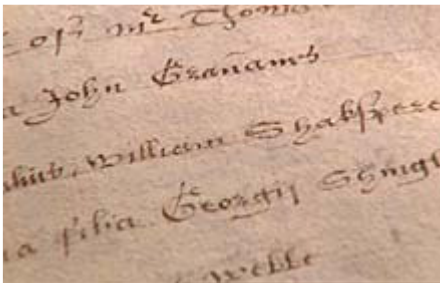 of mr Thomas
a John Granams
William Shakspere
a filia Georgii Shingl
Webbe